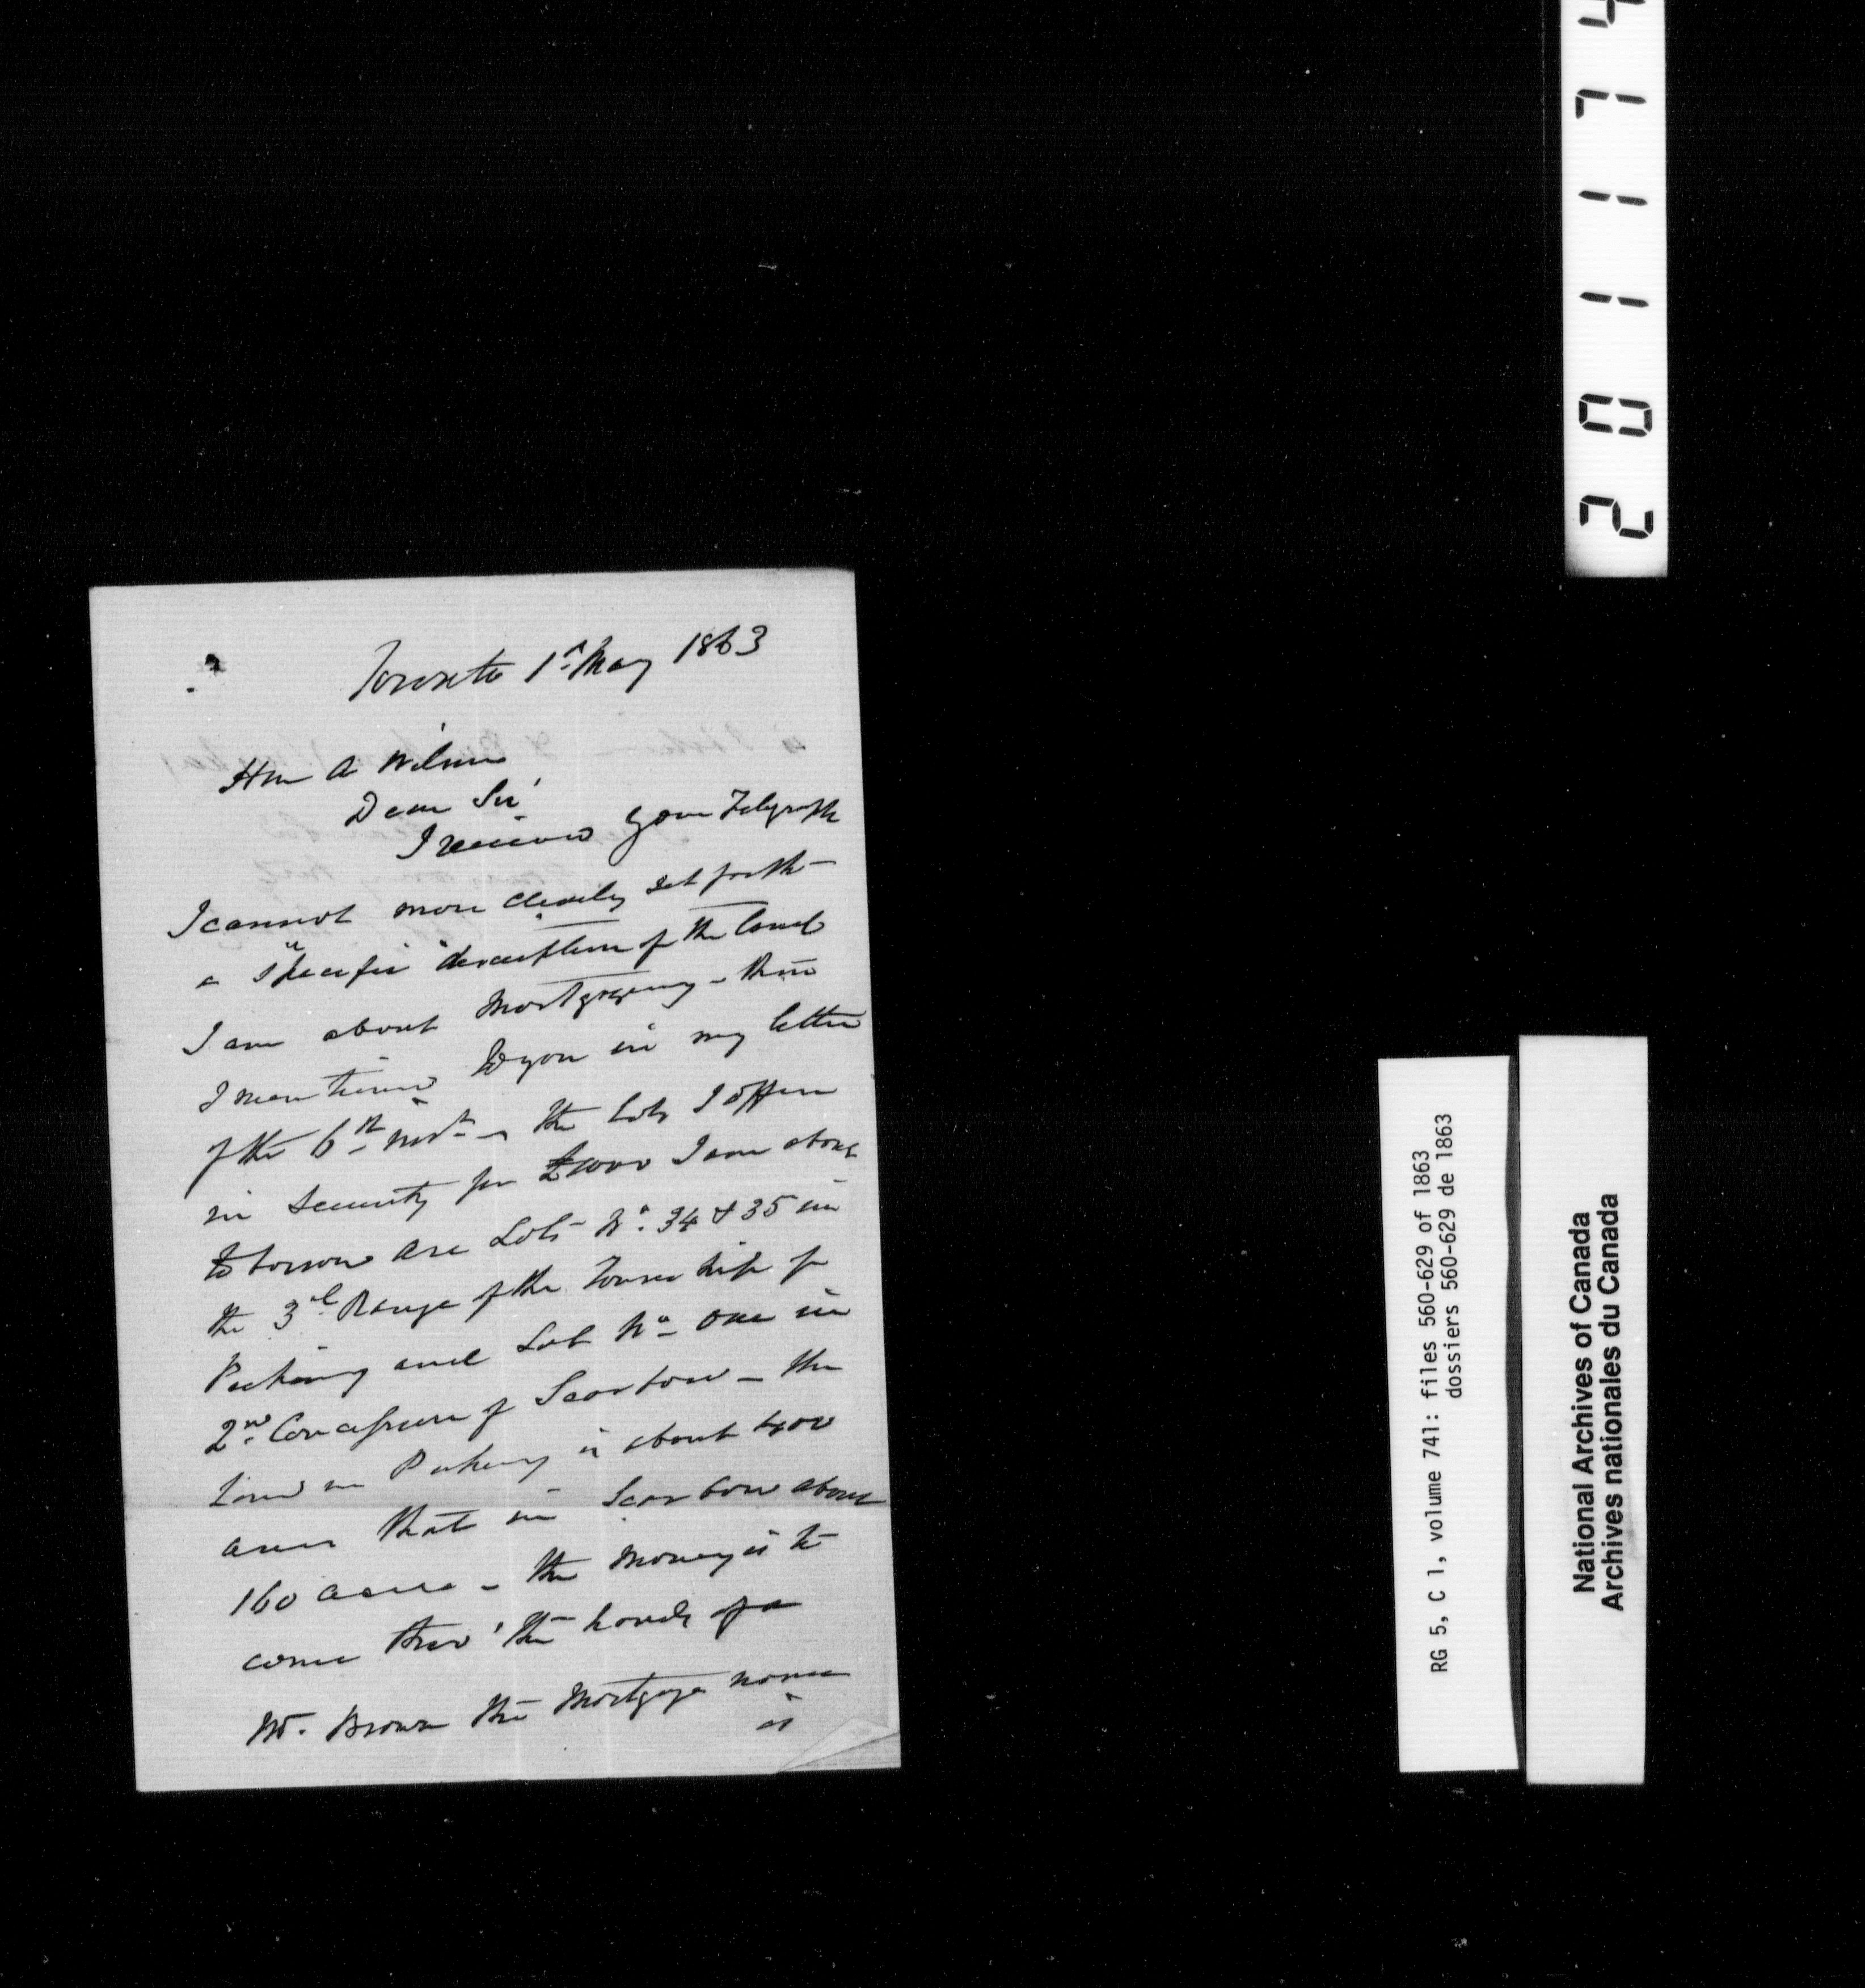 Toronto 1st May 1863
Hon A Wilson
Dear Sir
I received your Telegraph
I cannot more clearly set forth
a "specific" description of the land
I am about Mortgaging - than
I mentioned to you in my letter
of the 6th inst - the lots I offer
in security for £1000 I am about
to borrow are Lots No. 34 & 35 in
the 3rd Range of the Township of
Pickering and Lot No one in
2nd Concession of Scarboro - the
land in Pickering is about 400
acres that in Scarboro about
160 acres - the money is to
come thro' the hands of a
Mr. Brown the Mortgage name
is
2 0 1 1 7 4
RG 5, C 1, volume 741: files 560-629 of 1863
dossiers 560-629 de 1863
National Archives of Canada
Archives nationales du Canada